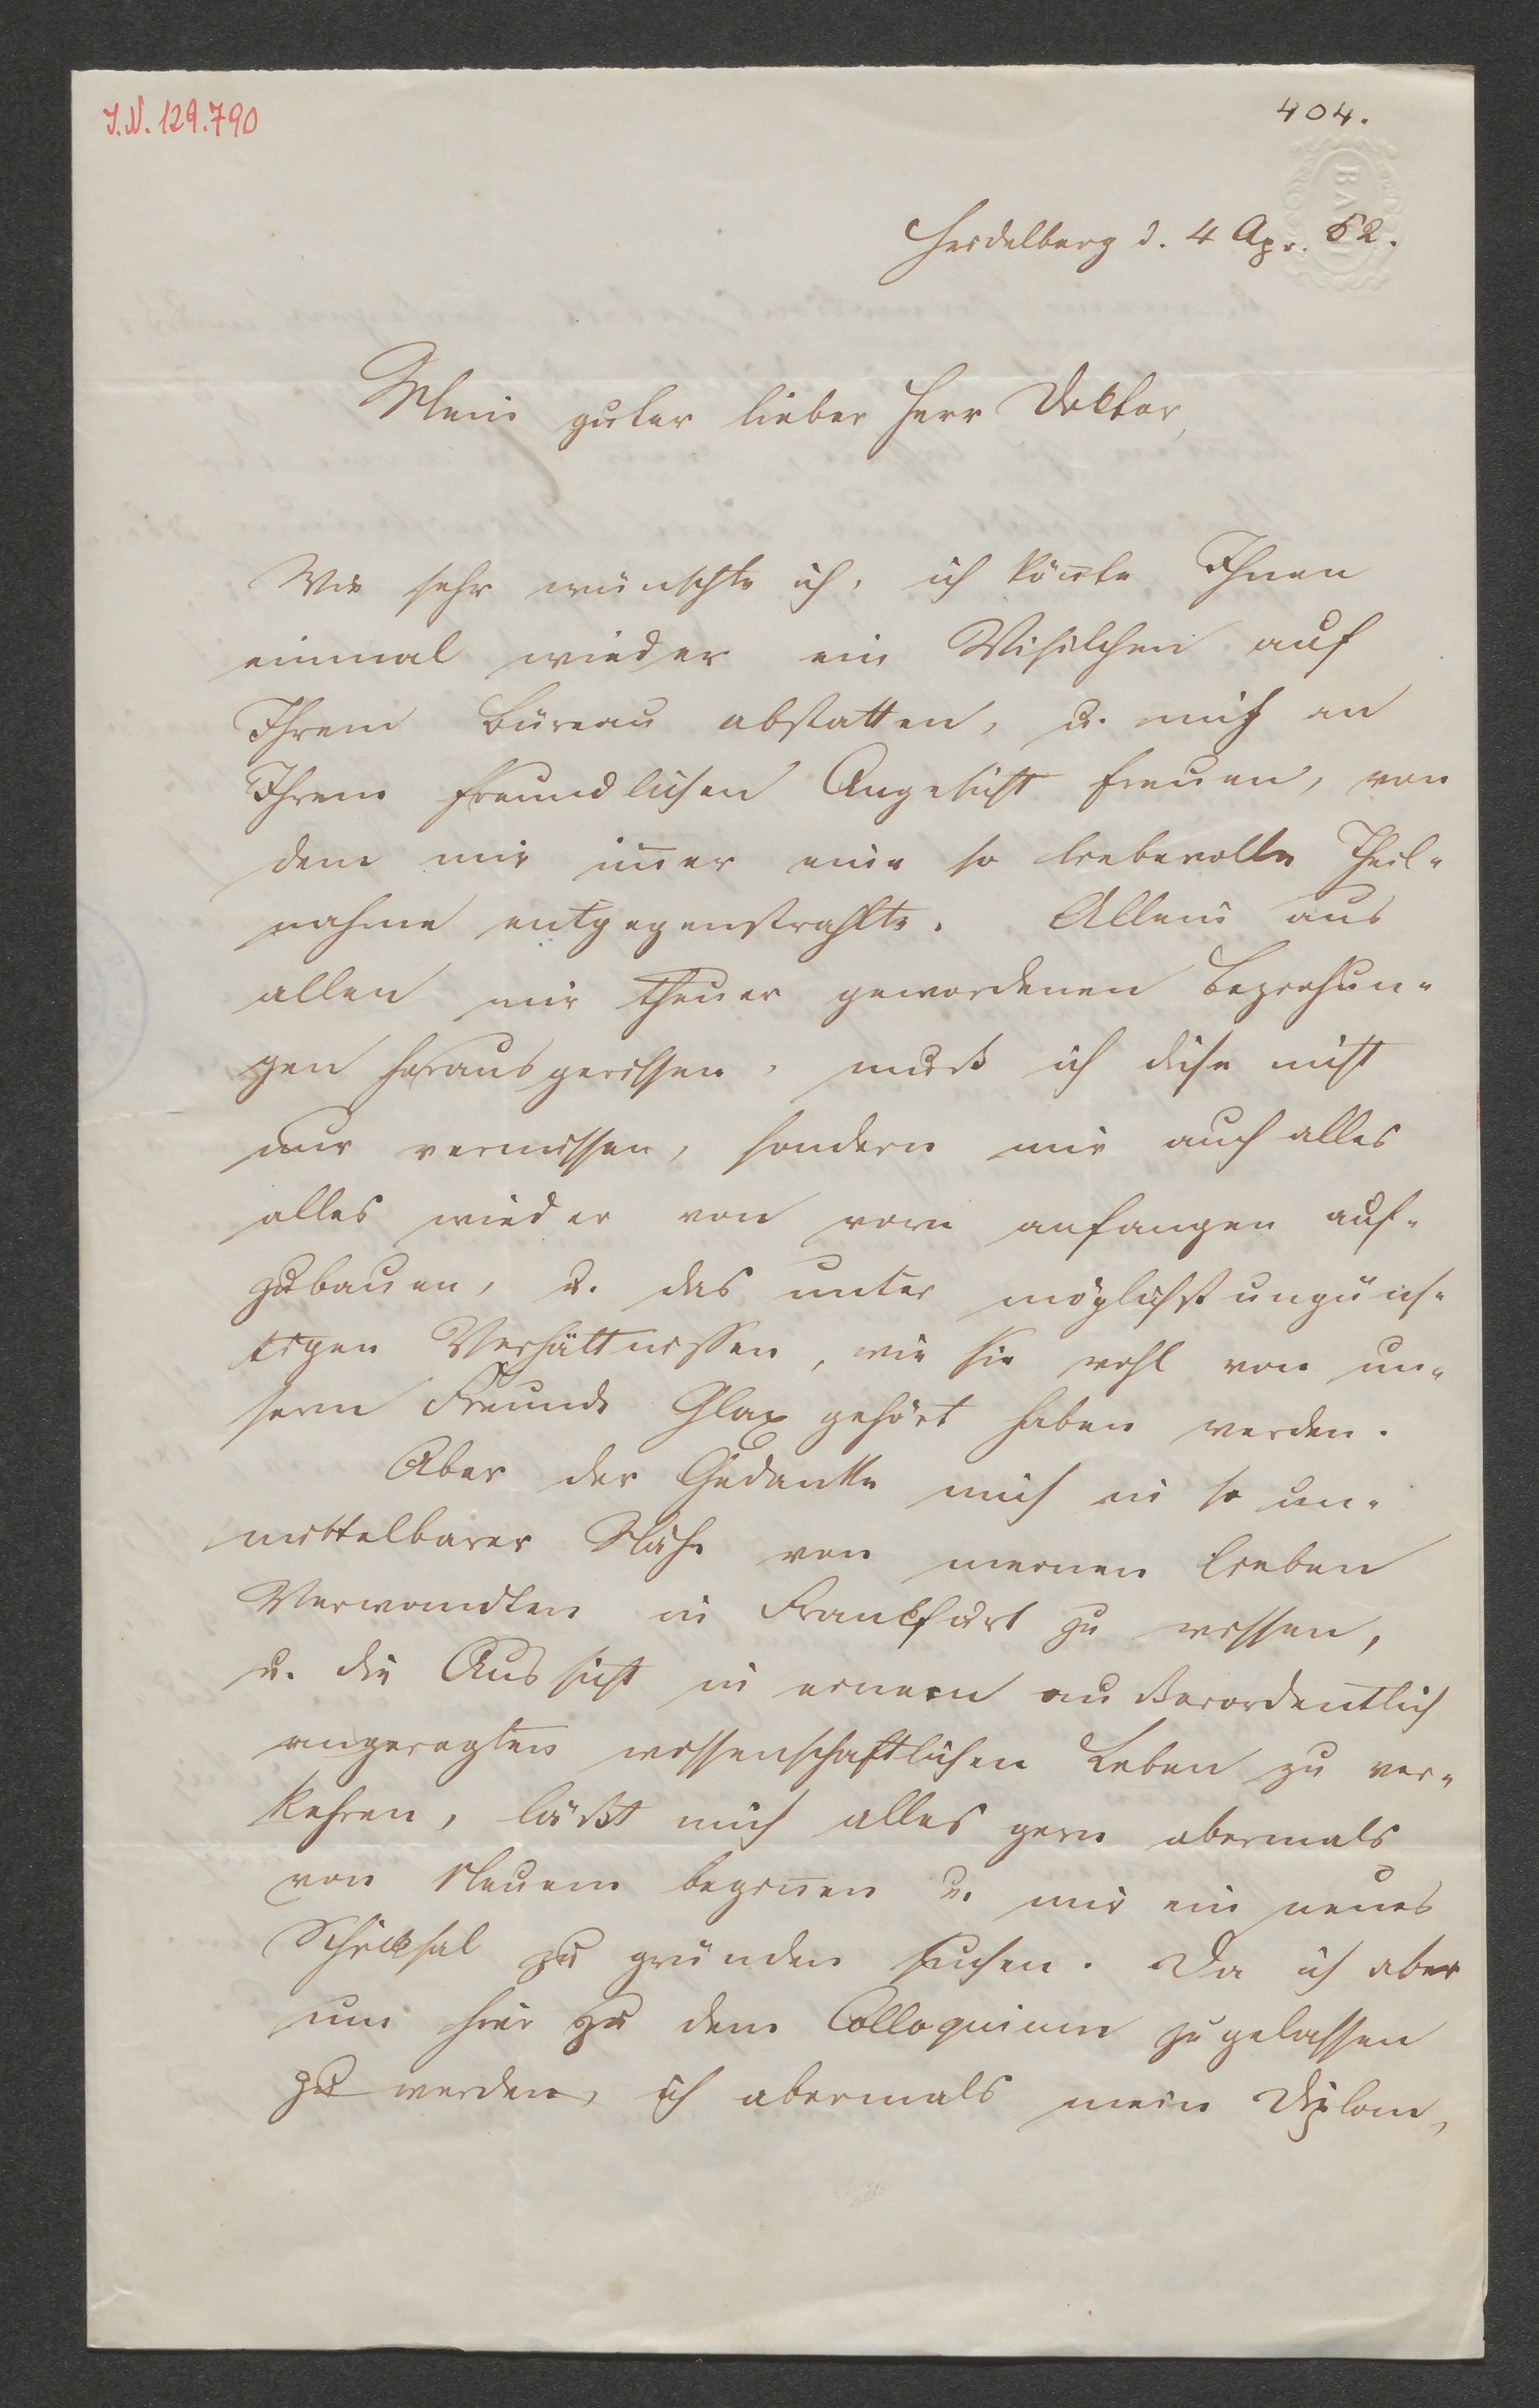 I.N. 129.790
404.
BATH
Heidelberg d. 4 Apr. 52.
Mein guter lieber Herr Doktor,
Wie sehr wünschte ich, ich kön̄te Ihnen
einmal wieder ein Visitchen auf
Ihrem Büreau abstatten, u. mich an
Ihrem freundlichen Angesicht freuen, von
dem mir im̄er eine so liebevolle Theil-
nahme entgegenstrahlte. Allein aus
allen mir theuer gewordenen Beziehun-
gen herausgerissen, muß ich diese nicht
nur vermissen, sondern mir auch alles
alles wieder von vorn anfangen auf-
zubauen, u. das unter möglichst ungüns-
tigen Verhältnissen, wie Sie wohl von un-
serm Freunde Glax gehört haben werden.
Aber der Gedanke mich in so un-
mittelbarer Nähe von meinen lieben
Verwandten in Frankfurt zu wissen,
u. die Aussicht in einem außerordentlich
angeregten wissenschaftlichen Leben zu ver-
kehren, läßt mich alles gern abermals
von Neuem begin̄en u. mir ein neues
Schicksal zu gründen suchen. Da ich aber
um hier zu dem Colloquium zugelassen
zu werden, ich abermals mein Diplom,